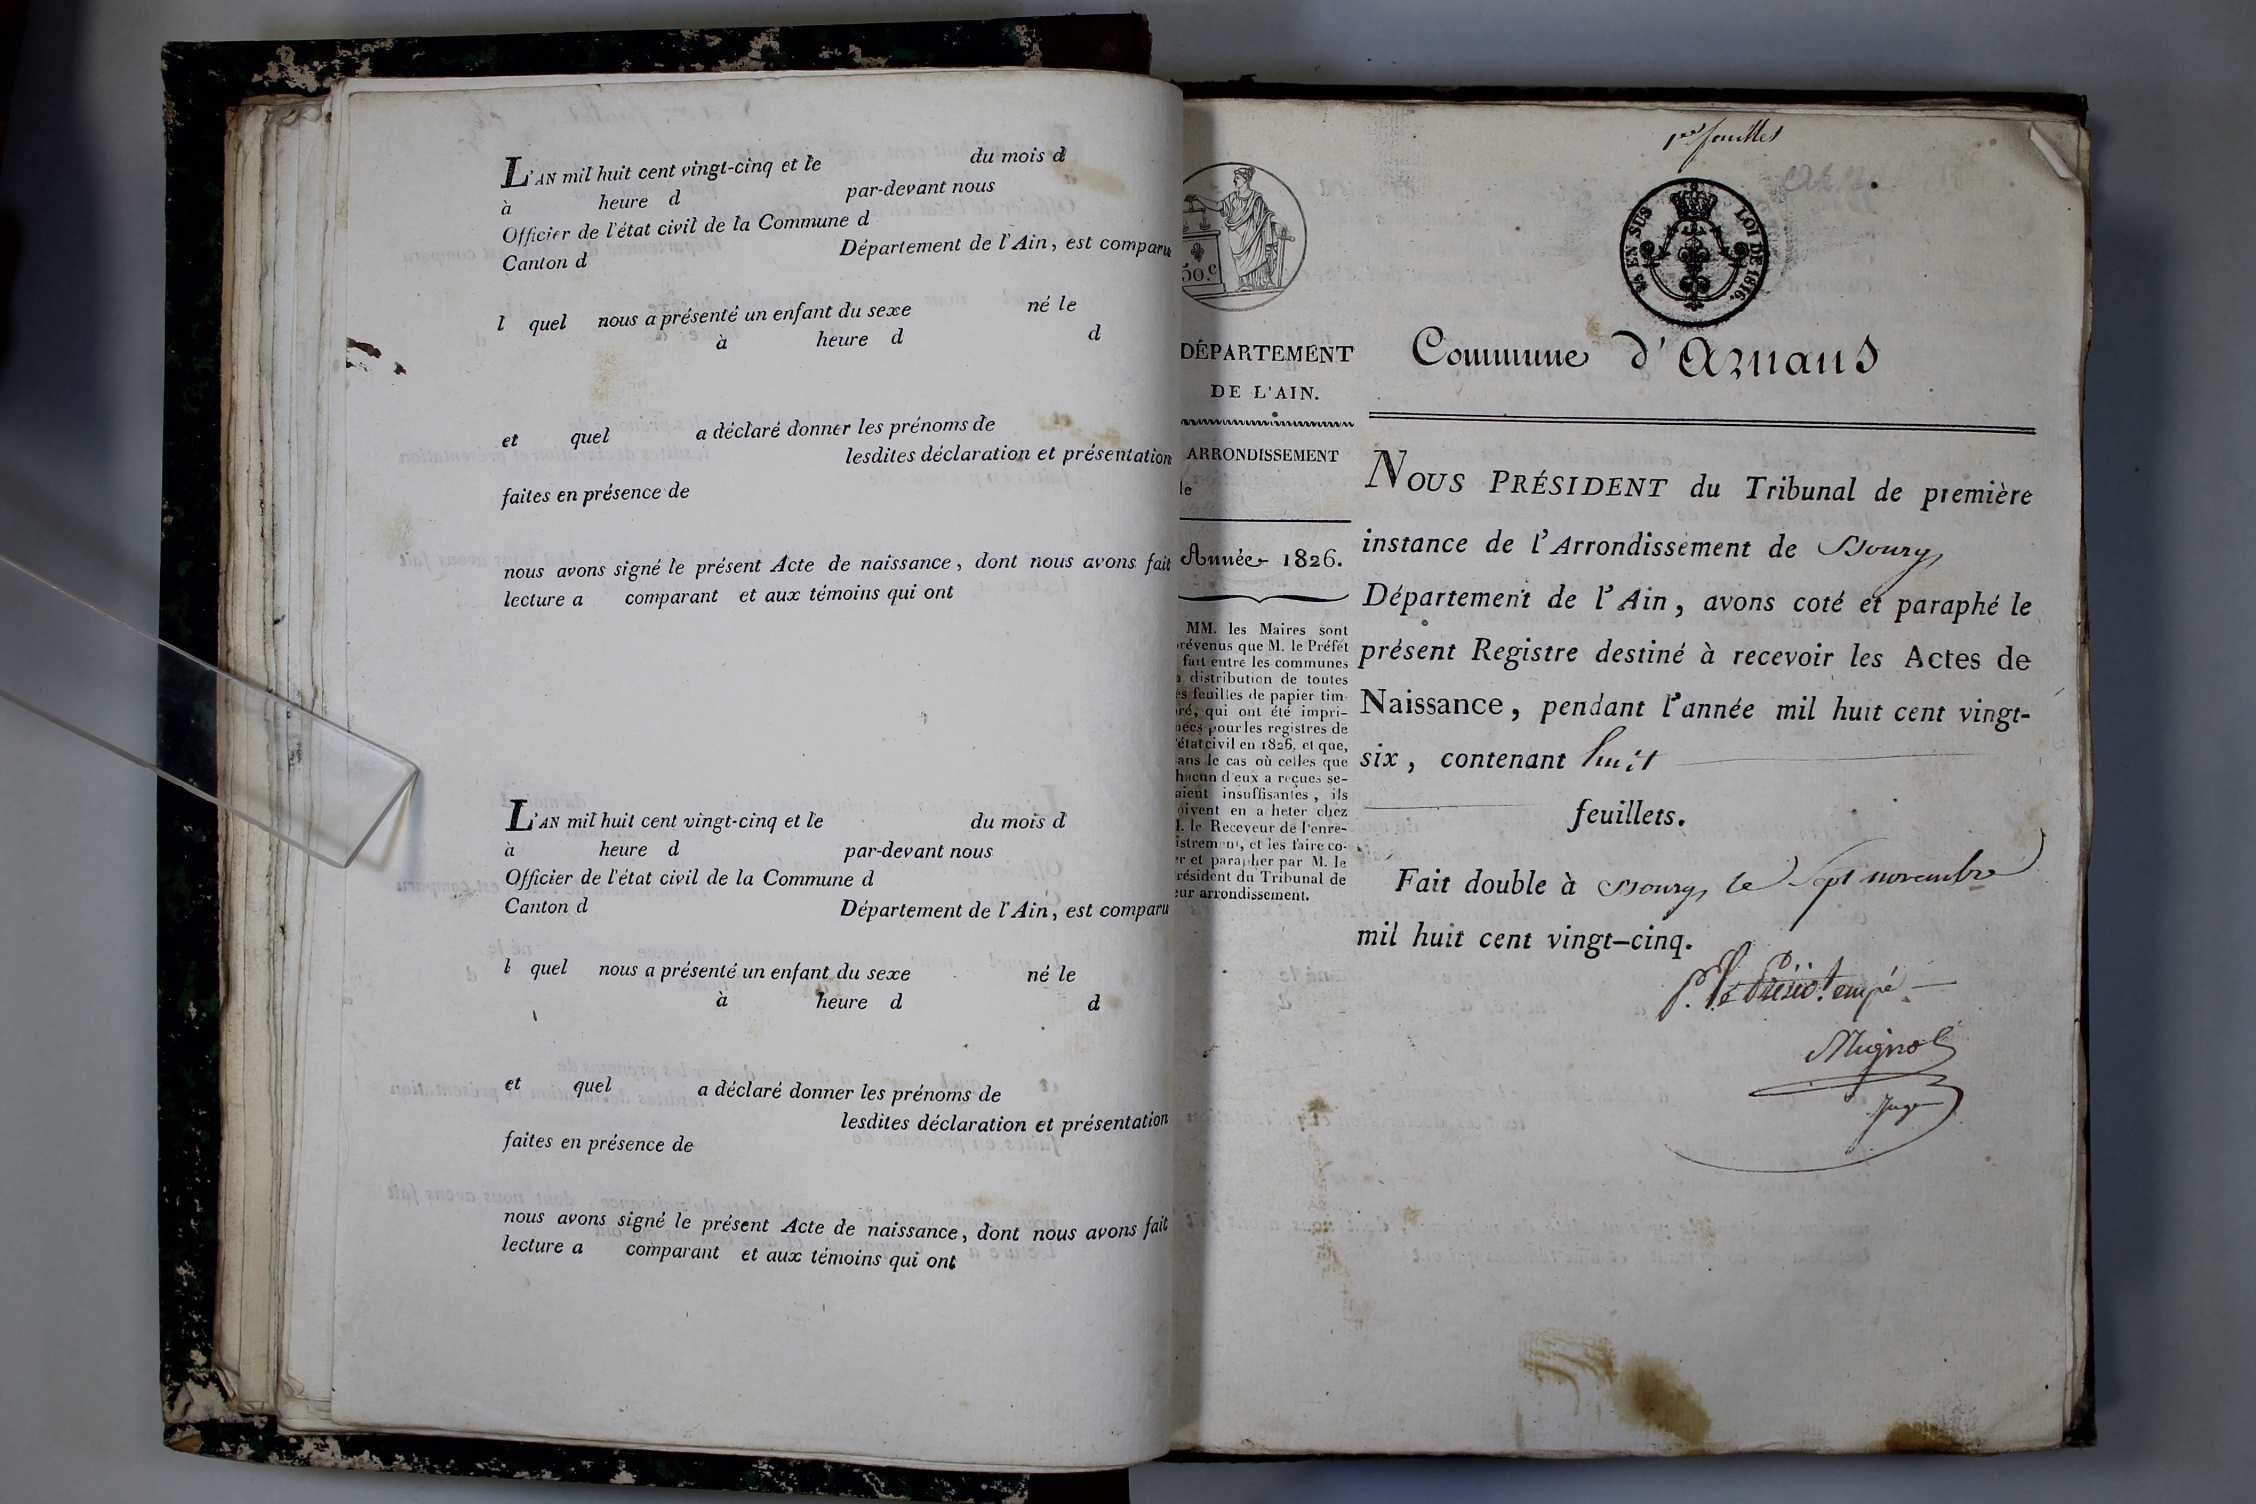 L'AN mil huit cent vingt-cinq et le du mois d
à heure d par-devant nous
Officier de l'état civil de la Commune d
Canton d Département de l'Ain, est comparu
l quel nous a présenté un enfant du sexe né le
à heure d d
et quel a déclaré donner les prénoms de
lesdites déclaration et présentation
faites en présence de
nous avons signé le présent Acte de naissance, dont nous avons fait
lecture a comparant et aux témoins qui ont
L'AN mil huit cent vingt-cinq et le du mois d
à heure d par-devant nous
Officier de l'état civil de la Commune d
Canton d Département de l'Ain, est comparu
l quel nous a présenté un enfant du sexe né le
à heure d d
et quel a déclaré donner les prénoms de
lesdites déclaration et présentation
faites en présence de
nous avons signé le présent Acte de naissance, dont nous avons fait
lecture a comparant et aux témoins qui ont
50.c
DÉPARTEMENT
DE L'AIN.
ARRONDISSEMENT
le
Année 1826.
MM. les Maires sont
révenus que M. le Préfet
fait entre les communes
a distribution de toutes
es feuilles de papier tim-
ré, qui ont été impri-
ées pour les registres de
'état civil en 1826, et que,
ans le cas où celles que
hacun d'eux a reçues se-
aient insuffisantes, ils
oivent en a heter chez
M. le Receveur de l'enre-
istrement, et les faire co-
er et parapher par M. le
résident du Tribunal de
eur arrondissement.
1er feuillet
EN SUS LOI DE 1816.
Commune d'Arnans
NOUS PRÉSIDENT du Tribunal de première
instance de l'Arrondissement de Bourg
Département de l'Ain, avons coté et paraphé le
présent Registre destiné à recevoir les Actes de
Naissance, pendant l'année mil huit cent vingt-
six, contenant huit
feuillets.
Fait double à Bourg, le Sept novembre
mil huit cent vingt-cinq.
P. le Présidt. empé
Mignot
Juge